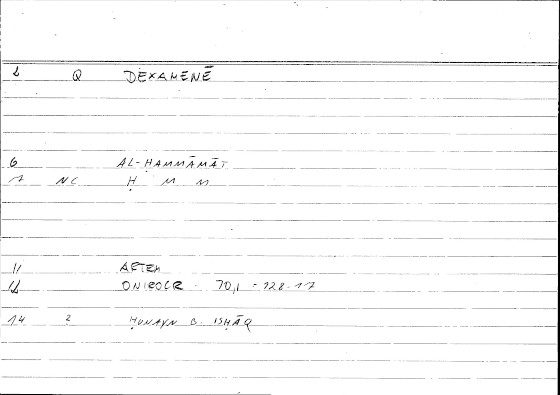 1 Q DEXAMENĒ
6 AL-ḤAMMĀMĀT
7 NC Ḥ M M
11 ARTEM
12 ONIROCR 70,1 - 128.17
14 2 ḤUNAYN B. ISḤĀQ